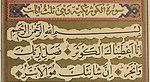 سورة الكوثر مكية وهي ثلاث آيات
بسم الله الرحمن الرحيم
إنا أعطيناك الكوثر فصل لربك
وانحر إن شانئك هو الأبتر